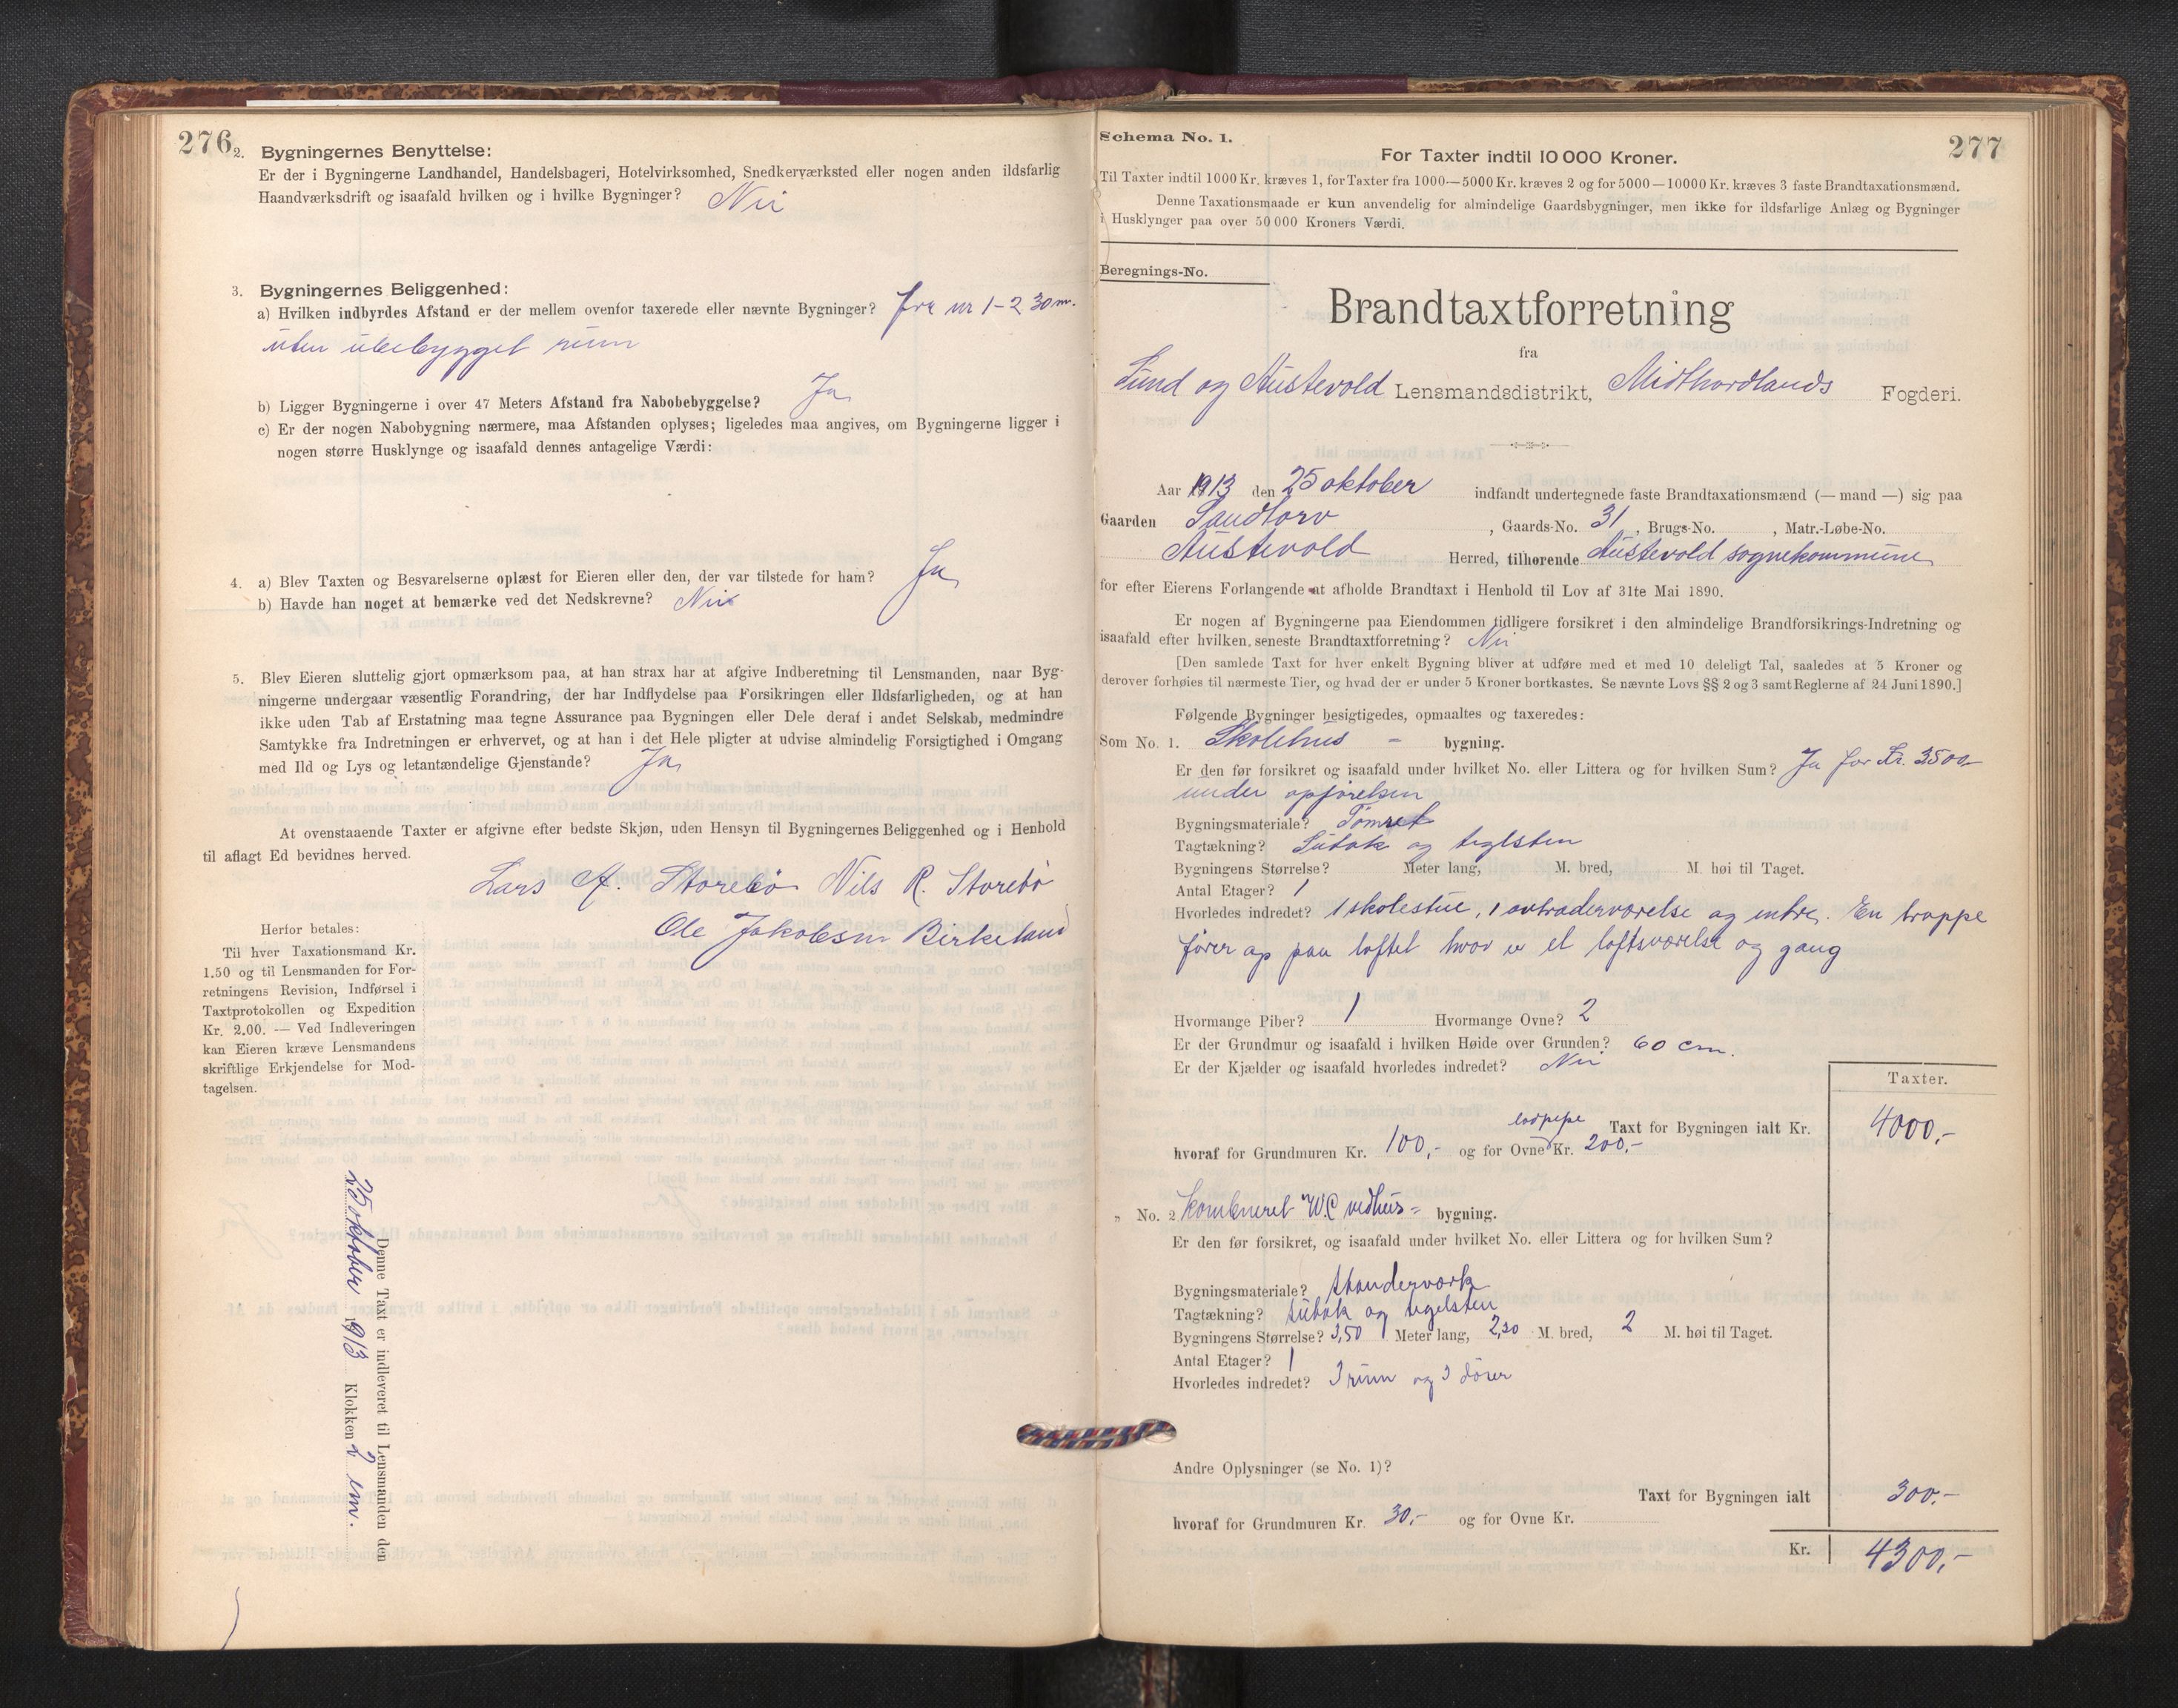 276
2. Bygningernes Benyttelse:
Er der i Bygningerne Landhandel, Handelsbageri, Hotelvirksomhed, Snedkerværksted eller nogen anden ildsfarlig
Haandværksdrift og isaafald hvilken og i hvilke Bygninger? Nei
3. Bygningernes Beliggenhed:
a) Hvilken indbyrdes Afstand er der mellem ovenfor taxerede eller nævnte Bygninger? fra nr 1-2 30 m.
uten ubebygget rum
b) Ligger Bygningerne i over 47 Meters Afstand fra Nabobebyggelse? Ja
c) Er der nogen Nabobygning nærmere, maa Afstanden oplyses; ligeledes maa angives, om Bygningerne ligger i
nogen større Husklynge og isaafald dennes antagelige Værdi:
4. a) Blev Taxten og Besvarelserne oplæst for Eieren eller den, der var tilstede for ham? Ja
b) Havde han noget at bemærke ved det Nedskrevne? Nei
5. Blev Eieren sluttelig gjort opmærksom paa, at han strax har at afgive Indberetning til Lensmanden, naar Byg-
ningerne undergaar væsentlig Forandring, der har Indflydelse paa Forsikringen eller Ildsfarligheden, og at han
ikke uden Tab af Erstatning maa tegne Assurance paa Bygningen eller Dele deraf i andet Selskab, medmindre
Samtykke fra Indretningen er erhvervet, og at han i det Hele pligter at udvise almindelig Forsigtighed i Omgang
med Ild og Lys og letantændelige Gjenstande? Ja
At ovenstaaende Taxter er afgivne efter bedste Skjøn, uden Hensyn til Bygningernes Beliggenhed og i Henhold
til aflagt Ed bevidnes herved.
Lars A. Storebø Nils R. Storebø
Ole Jakobsen Birkeland
Herfor betales:
Til hver Taxationsmand Kr.
1.50 og til Lensmanden for For-
retningens Revision, Indførsel i
Taxtprotokollen og Expedition
Kr. 2.00. — Ved Indleveringen
kan Eieren kræve Lensmandens
skriftlige Erkjendelse for Mod-
tagelsen.
Denne Taxt er indleveret til Lensmanden den
25 oktober 1913 Klokken 2 em.
Schema No. 1.
277
For Taxter indtil 10 000 Kroner.
Til Taxter indtil 1000 Kr. kræves 1, for Taxter fra 1000—5000 Kr. kræves 2 og for 5000—10000 Kr. kræves 3 faste Brandtaxationsmænd.
Denne Taxationsmaade er kun anvendelig for almindelige Gaardsbygninger, men ikke for ildsfarlige Anlæg og Bygninger
i Husklynger paa over 50 000 Kroners Værdi.
Beregnings-No.
Brandtaxtforretning
fra
Sund og Austevold Lensmandsdistrikt, Midthordlands Fogderi.
Aar 1913 den 25 oktober indfandt undertegnede faste Brandtaxationsmænd (— mand —) sig paa
Gaarden Sandtorv, Gaards-No. 31, Brugs-No. , Matr.-Løbe-No.
Austevold Herred, tilhørende Austevold sognekommune
for efter Eierens Forlangende at afholde Brandtaxt i Henhold til Lov af 31te Mai 1890.
Er nogen af Bygningerne paa Eiendommen tidligere forsikret i den almindelige Brandforsikrings-Indretning og
isaafald efter hvilken seneste Brandtaxtforretning? Nei
[Den samlede Taxt for hver enkelt Bygning bliver at udføre med et med 10 deleligt Tal, saaledes at 5 Kroner og
derover forhøies til nærmeste Tier, og hvad der er under 5 Kroner bortkastes. Se nævnte Lovs §§ 2 og 3 samt Reglerne af 24 Juni 1890.]
Følgende Bygninger besigtigedes, opmaaltes og taxeredes:
Som No. 1. Skolehus - bygning.
Er den før forsikret og isaafald under hvilket No. eller Littera og for hvilken Sum? Ja for Kr. 3500,-
under opførelsen
Bygningsmateriale? Tømret
Tagtækning? Sutak og teglsten
Bygningens Størrelse? Meter lang, M. bred, M. høi til Taget.
Antal Etager? 1
Hvorledes indredet? 1 skolestue, 1 avtræderværelse og entre. En trappe
fører op paa loftet hvor er et loftsværelse og gang
Hvormange Piber? 1 Hvormange Ovne? 2
Er der Grundmur og isaafald i hvilken Høide over Grunden? 60 cm.
Er der Kjælder og isaafald hvorledes indredet? Nei
Taxter.
Taxt for Bygningen ialt Kr. 4000,-
hvoraf for Grundmuren Kr. 100,- og for Ovne Kr. 200,-
„ No. 2 Kombineret W.C vedhus- bygning.
Er den før forsikret, og isaafald under hvilket No. eller Littera og for hvilken Sum?
Bygningsmateriale? Standerværk
Tagtækning? sutak og teglsten
Bygningens Størrelse? 3,50 Meter lang, 2,20 M. bred, 2 M. høi til Taget.
Antal Etager? 1
Hvorledes indredet? 3 rum og 3 dører
Andre Oplysninger (se No. 1)?
Taxt for Bygningen ialt 300.-
hvoraf for Grundmuren Kr. 30,- og for Ovne Kr.
Kr. 4300,-